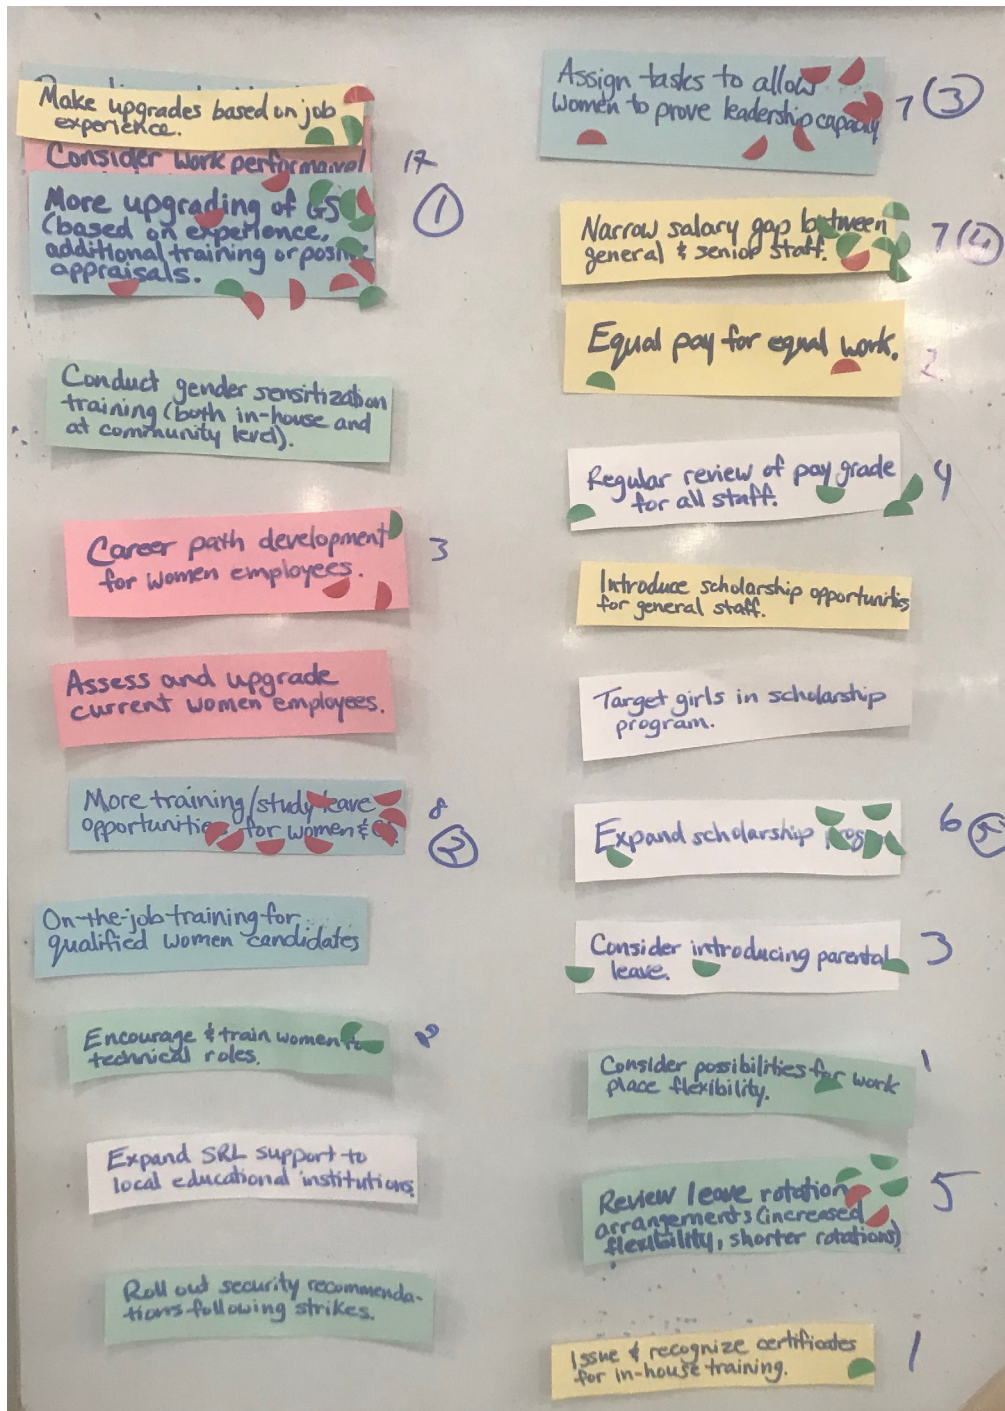 Make upgrades based on job
experience.
Consider work
17
More upgrading of GS
1
(based on experience,
additional training or
appraisals.
Conduct gender sensitization
training (both in-house and
at community level).
Career path development
for women employees.
3
Assess and upgrade
current women employees.
More training/study leave
opportunities for women &
8
2
On-the-job training for
qualified women candidates
Encourage & train women
technical roles.
2
Expand SRL support to
local educational institutions
Roll out security recommenda-
tions following strikes.
Assign tasks to allow
women to prove leadership capacity
7 3
Narrow salary gap between
general & senior staff.
7 4
Equal pay for equal work.
2
Regular review of pay grade
for all staff.
4
Introduce scholarship opportunities
for general staff.
Target girls in scholarship
program.
Expand scholarship
6 5
Consider introducing parental
leave.
3
Consider possibilities for work
place flexibility.
1
Review leave rotation
arrangements (increased
flexibility, shorter rotations)
5
Issue & recognize certificates
for in-house training.
1